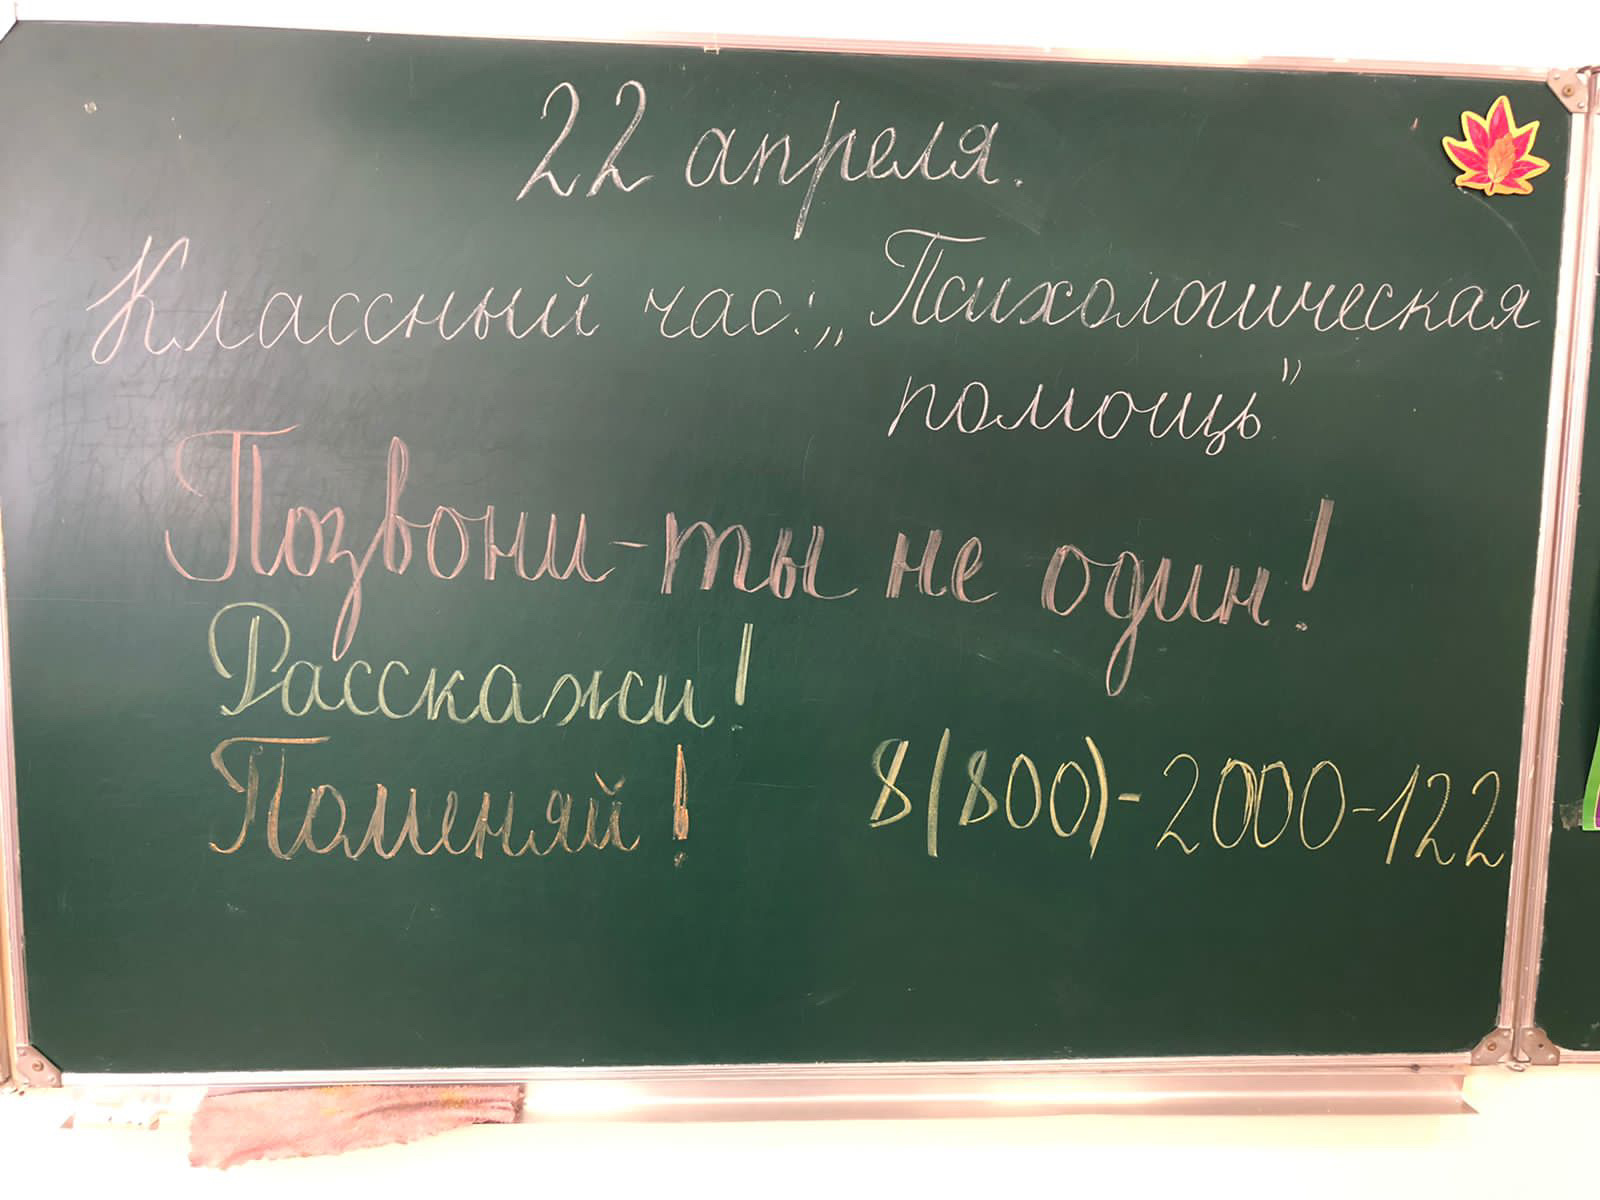 22 апреля.
Классный час: „Психологическая
помощь"
Позвони - ты не один!
Расскажи!
Поменяй!
8(800)-2000-122